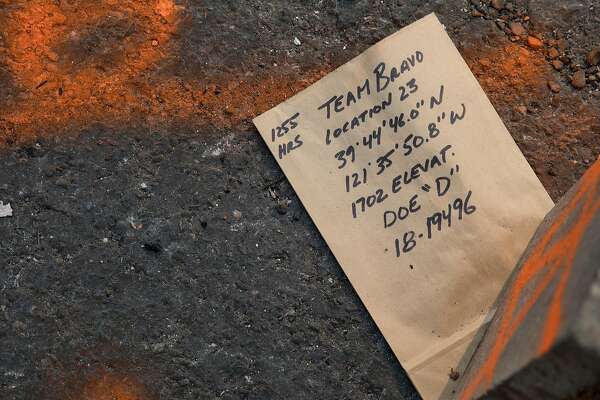 1255 HRS
TEAM BRAVO
LOCATION 23
39°44'46.0" N
121°35'50.8" W
1702 ELEVAT.
DOE "D"
18-19496